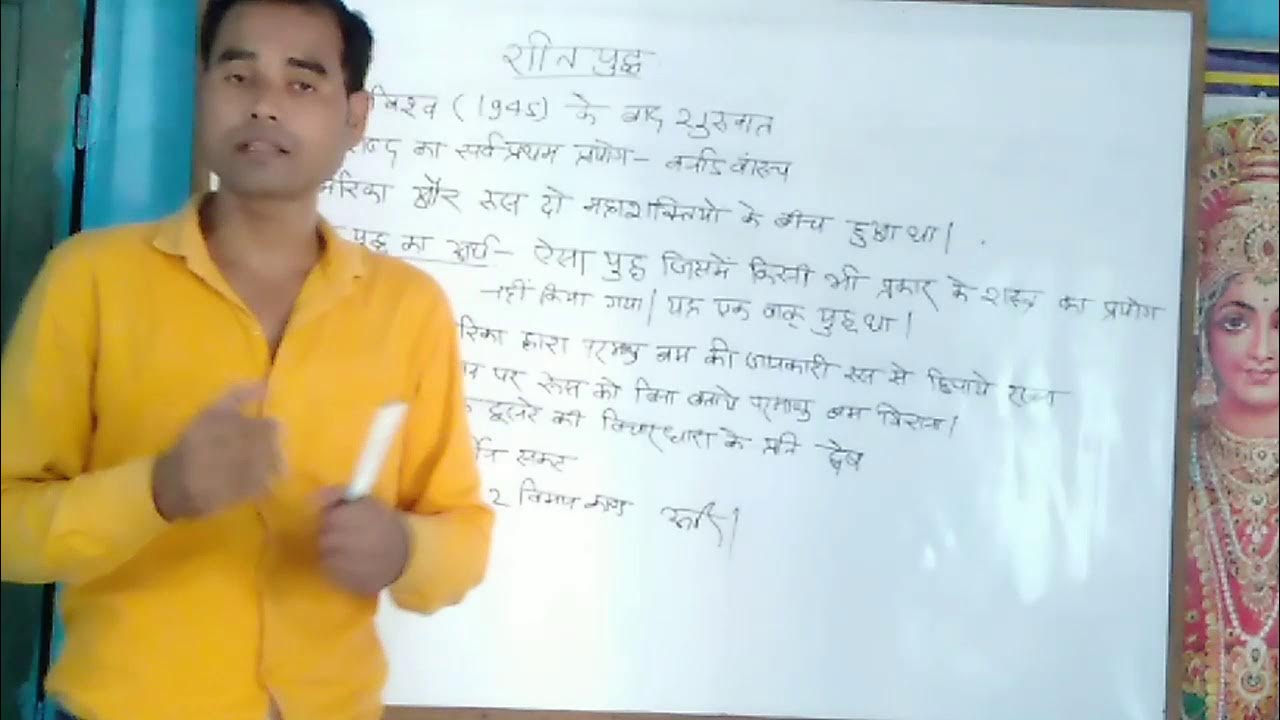 शीत युद्ध
विश्व (1945) के बाद शुरुवात
शब्द का सर्वप्रथम प्रयोग - बर्नाड
मेरिका और रूस दो महाशक्तियो के बीच हुआ था।
युद्ध का अर्थ - ऐसा युद्ध जिसमें किसी भी प्रकार के शस्त्र का प्रयोग
नहीं किया गया। यह एक वाक् युद्ध था।
रिका द्वारा परमाणु बम की जानकारी रूस से छिपाये रखना
पर रूस को बिना बताये परमाणु बम गिराना।
दूसरे की विचारधारा के प्रति द्वेष
संकट
2 विमान काण्ड